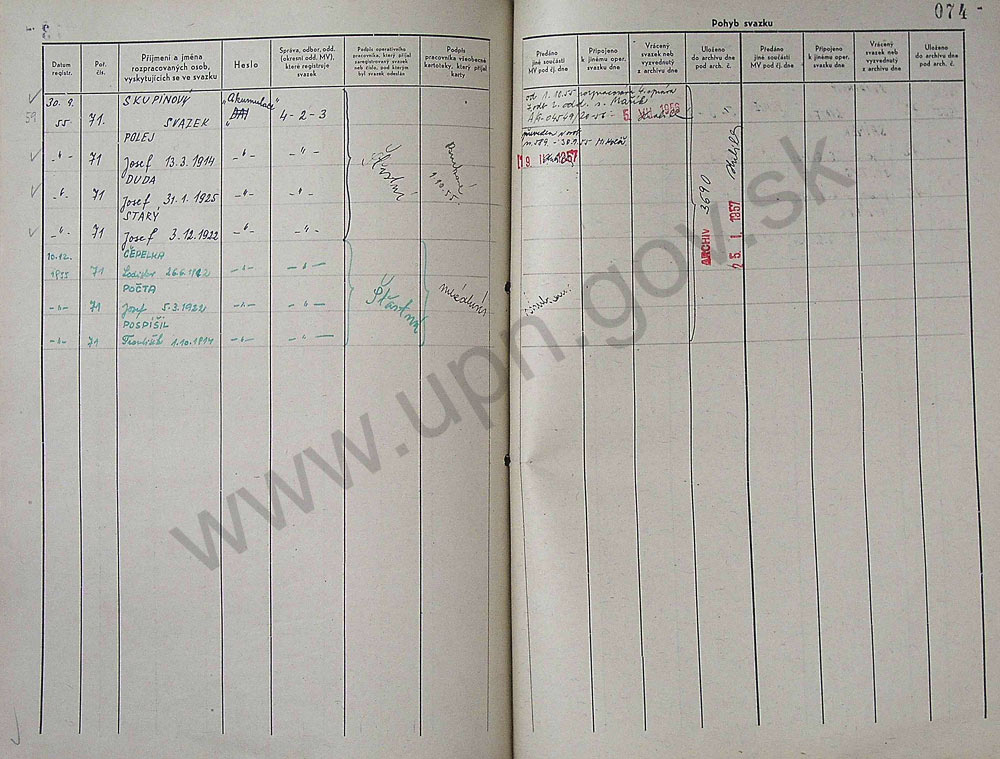 074
Pohyb svazku
Datum
registr.
Poř.
čís.
Příjmení a jména
rozpracovaných osob,
vyskytujících se ve svazku
Heslo
Správa, odbor, odd.
(okresní odd. MV),
které registruje
svazek
Podpis operativního
pracovníka, který přijal
zaregistrovaný svazek
neb číslo, pod kterým
byl svazek odeslán
Podpis
pracovníka všeobecné
kartoteky, který přijal
karty
Předáno
jiné součásti
MV pod čj. dne
Připojeno
k jinému oper.
svazku dne
Vrácený
svazek neb
vyzvednutý
z archivu dne
Uloženo
do archivu dne
pod arch. č.
Předáno
jiné součásti
MV pod čj. dne
Připojeno
k jinému oper.
svazku dne
Vrácený
svazek neb
vyzvednutý
z archivu dne
Uloženo
do archivu dne
pod arch. č.
30. 9. SKUPINOVÝ „Akumulace“
59 55 71. SVAZEK 4-2-3
POLEJ
-"- 71 Josef 13.3.1914 -"- -"-
DUDA
-"- 71 Josef 31.1.1925 -"- -"-
STARÝ
-"- 71 Josef 3.12.1922 -"- -"-
Šťastný
1.10.55
10.12. ČEPELKA
1955 71 Ladislav -"- -"-
POČTA
-"- 71 Josef 5.3.1922 -"- -"-
POSPÍŠIL
-"- 71 František 1.10.1914 -"- -"-
Šťastný
od 1.10.55
5. VII 1956
převeden
19. II. 1957
ARCHIV 3690
25. I. 1957
www.upn.gov.sk